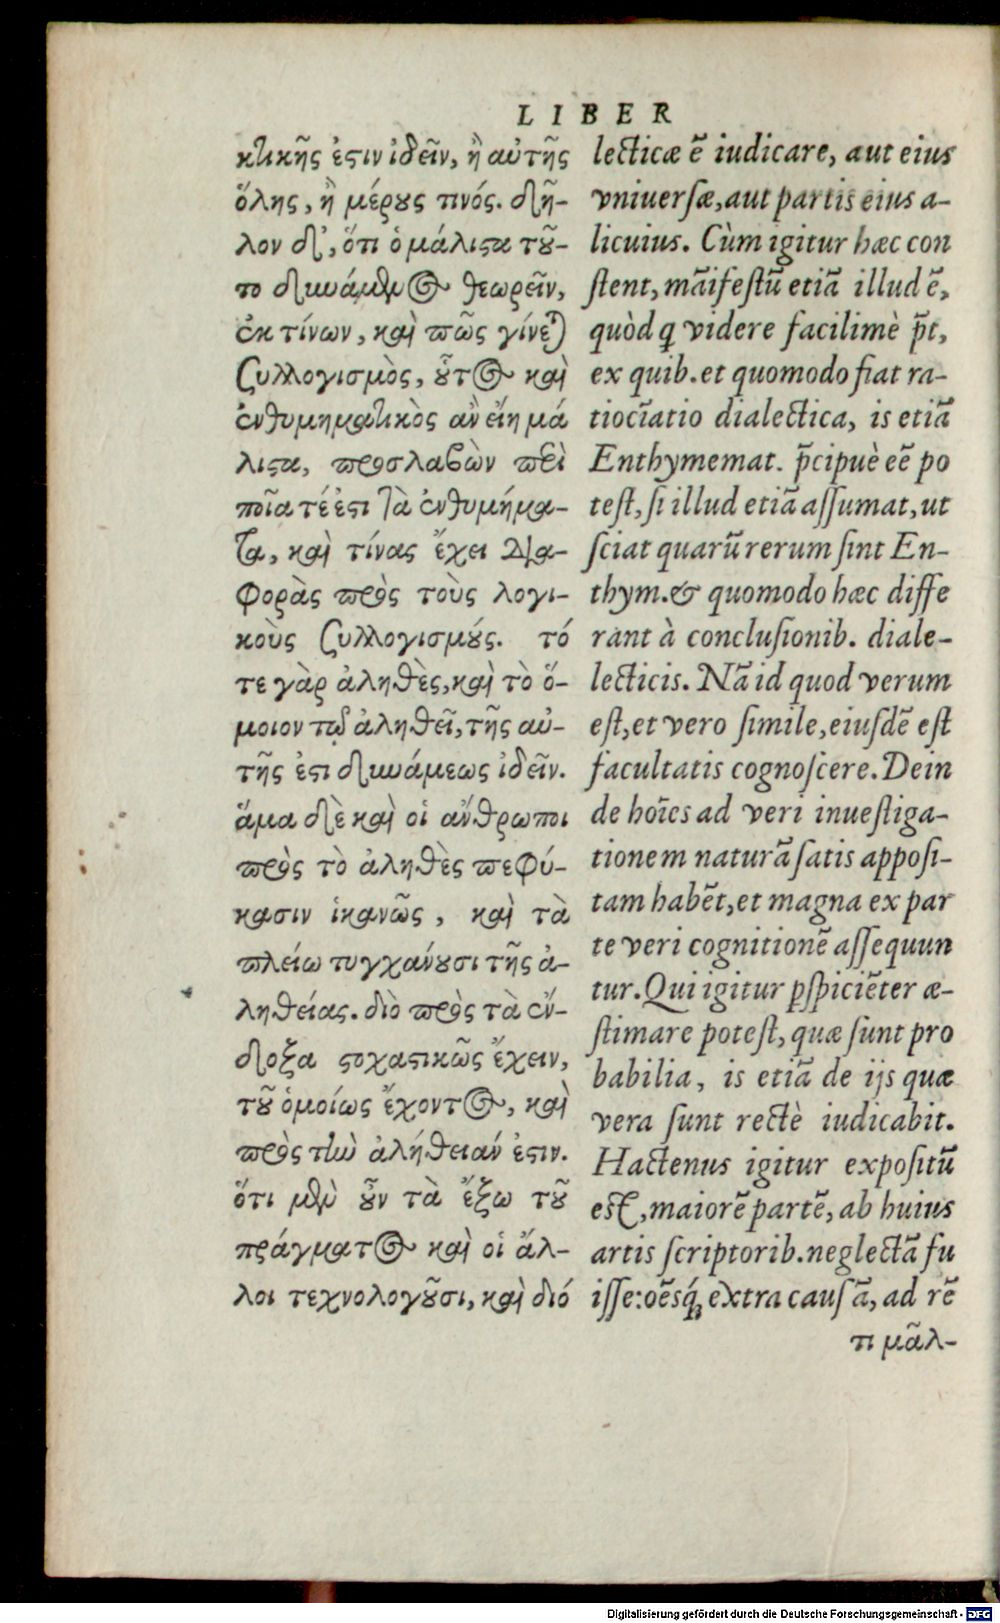 LIBER
κτικῆς ἐστιν ἰδεῖν, ἢ αὐτῆς
ὅλης, ἢ μέρους τινός. δῆ-
λον δ', ὅτι ὁ μάλιστα τοῦ-
το δυνάμενος θεωρεῖν,
ἐκ τίνων, καὶ πῶς γίνεται
συλλογισμὸς, οὗτος καὶ
ἐνθυμηματικὸς ἂν εἴη μά
λιστα, προσλαβὼν περὶ
ποῖα τέ ἐστι τὰ ἐνθυμήμα-
τα, καὶ τίνας ἔχει δια-
φορὰς πρὸς τοὺς λογι-
κοὺς συλλογισμούς. τό
τε γὰρ ἀληθὲς, καὶ τὸ ὅ-
μοιον τῷ ἀληθεῖ, τῆς αὐ-
τῆς ἐστι δυνάμεως ἰδεῖν.
ἅμα δὲ καὶ οἱ ἄνθρωποι
πρὸς τὸ ἀληθὲς πεφύ-
κασιν ἱκανῶς, καὶ τὰ
πλείω τυγχάνουσι τῆς ἀ-
ληθείας. διὸ πρὸς τὰ ἔν-
δοξα στοχαστικῶς ἔχειν,
τοῦ ὁμοίως ἔχοντος, καὶ
πρὸς τὴν ἀλήθειάν ἐστιν.
ὅτι μὲν οὖν τὰ ἔξω τοῦ
πράγματος καὶ οἱ ἄλ-
λοι τεχνολογοῦσι, καὶ διό
lecticæ ẽ iudicare, aut eius
vniuersæ, aut partis eius a-
licuius. Cùm igitur hæc con
stent, mãifestũ etiã illud ẽ,
quòd q videre facilimè p̃t,
ex quib. et quomodo fiat ra-
tiocĩatio dialectica, is etiã
Enthymemat. p̃cipuè eẽ po
test, si illud etiã assumat, ut
sciat quarũ rerum sint En-
thym. & quomodo hæc diffe
rant à conclusionib. diale-
lecticis. Nã id quod verum
est, et vero simile, eiusdẽ est
facultatis cognoscere. Dein
de hoĩes ad veri inuestiga-
tionem naturã satis apposi-
tam habẽt, et magna ex par
te veri cognitionẽ assequun
tur. Qui igitur ꝑspiciẽter æ-
stimare potest, quæ sunt pro
babilia, is etiã de ijs quæ
vera sunt rectè iudicabit.
Hactenus igitur expositũ
est, maiorẽ partẽ, ab huius
artis scriptorib. neglectã fu
isse: oẽsq́; extra causã, ad rẽ
τι μᾶλ-
Digitalisierung gefördert durch die Deutsche Forschungsgemeinschaft - DFG